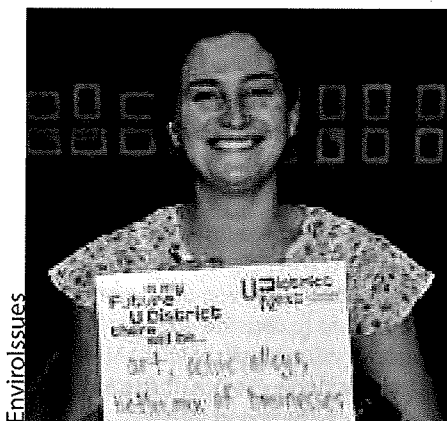 EnviroIssues
in my
Future
U District
there
will be...
U District
Next
art, active alleys,
better mix of businesses